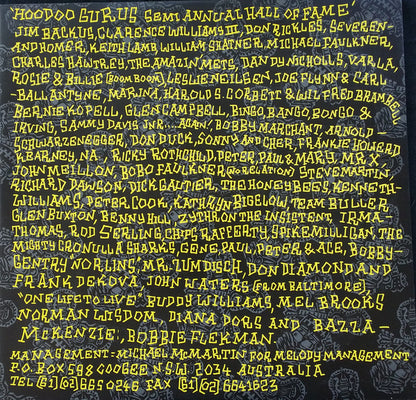 'HOODOO GURUS SEMI ANNUAL HALL OF FAME'
JIM BACKUS, CLARENCE WILLIAMS III, DON RICKLES, SEVEREN-
ANDHOMER, KEITH LAMB, WILLIAM SHATNER, MICHAEL FAULKNER,
CHARLES HAWTREY, THE AMAZIN METS, DANDY NICHOLLS, VARLA,
ROSIE & BILLIE (BOOM BOOM), LESLIE NEILSEN, JOE FLYNN & CARL-
BALLANTYNE, MARINA, HAROLD S. CORBETT & WILFRED BRAMBELL
BERNIE KOPELL, GLEN CAMPBELL, BINGO, BANGO, BONGO &
IRVING, SAMMY DAVIS JNR... AGAIN! BOBBY MARCHANT, ARNOLD-
SCHWARZENEGGER, DON DUCK, SONNY AND CHER, FRANKIE HOWERD
KEARNEY NA, RICKY ROTHCHILD, PETER, PAUL & MARY, MR. X,
JOHN MEILLON, BOBO FAULKNER (NO RELATION) STEVE MARTIN,
RICHARD DAWSON, DICK GAUTIER, THE HONEY BEES, KENNETH-
WILLIAMS, PETER COOK, KATHRYN BIGELOW, TEAM BULLER,
GLEN BUXTON, BENNY HILL, ZYTHRON THE INSISTENT, IRMA-
THOMAS, ROD SERLING, CHIPS RAFFERTY, SPIKE MILLIGAN, THE
MIGHTY CRONULLA SHARKS, GENE, PAUL, PETER & ACE, BOBBY-
GENTRY "NORLINS", MR. ZUMDISCH, DON DIAMOND AND
FRANK DEKOVA, JOHN WATERS (FROM BALTIMORE),
"ONE LIFE TO LIVE" BUDDY WILLIAMS, MEL BROOKS
NORMAN WISDOM, DIANA DORS AND BAZZA-
MCKENZIE, BOBBIE FLEKMAN.
MANAGEMENT = MICHAEL MCMARTIN FOR MELODY MANAGEMENT
P.O. BOX 598 COOGEE N.S.W. 2034 AUSTRALIA
TEL (61)(02) 665 0246 FAX (61)(02) 6641623